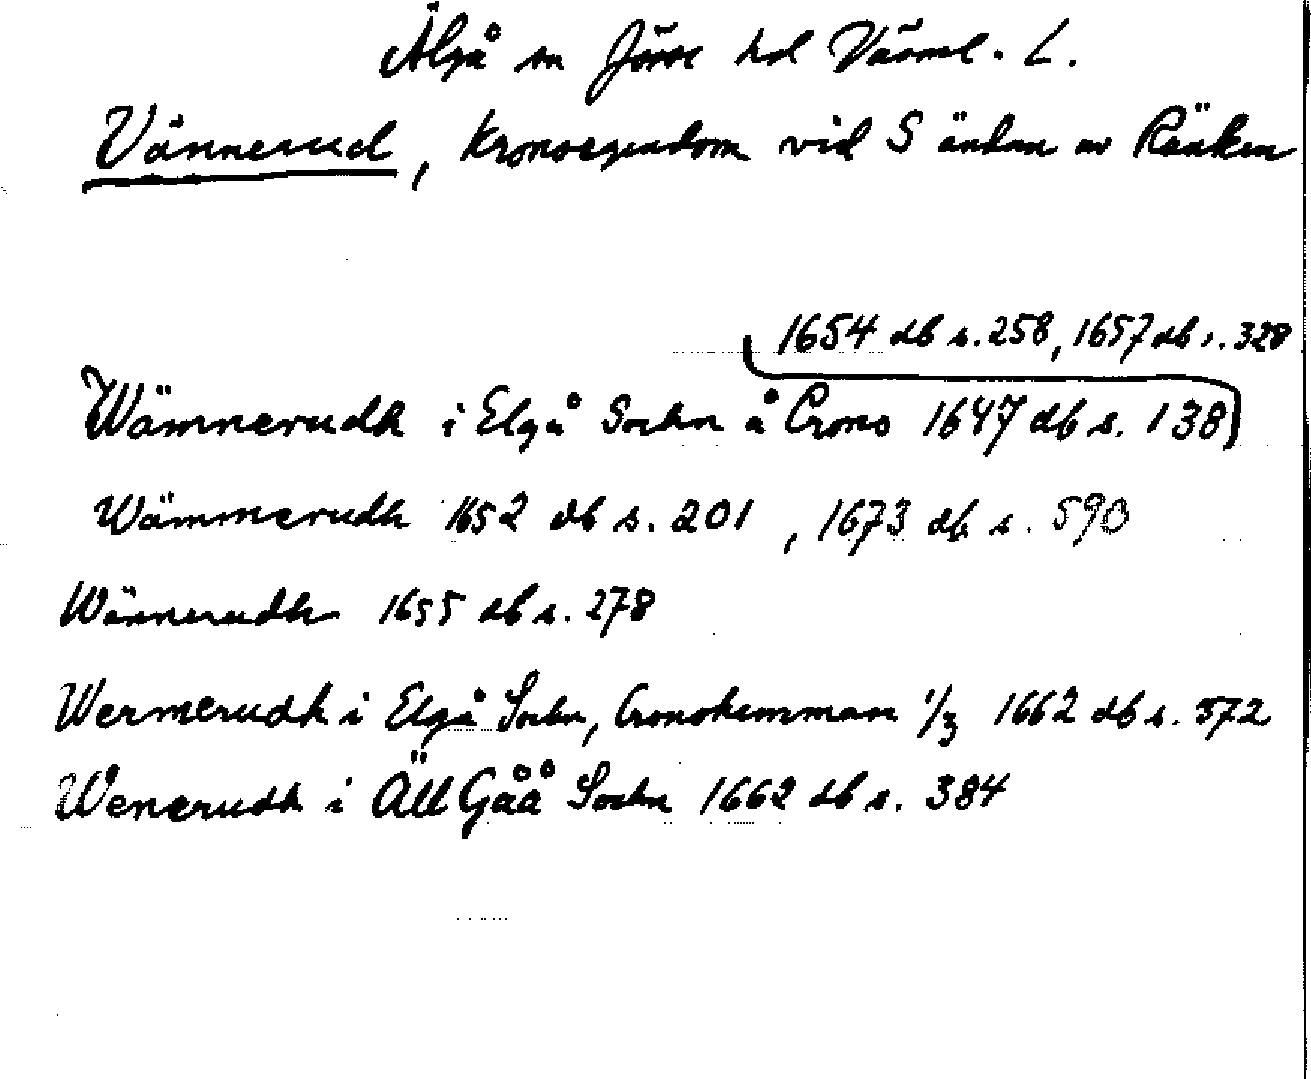 Älgå sn Jösse hd Värml. L.
Vännerud, Kronoegendom vid S ändan av Räcken
1654 db s. 258, 1657 db s. 328
Wämnerudh i Elgå Sochn å Crono 1647 db s. 138
Wämmerudh 1652 db s. 201, 1673 db s. 590
Wännerudh 1655 db s. 278
Wermerudh i Elgå Sochn, Cronohemman 1/3 1662 db s. 372
Wenerudh i ÄllGåå Sochn 1662 db s. 384